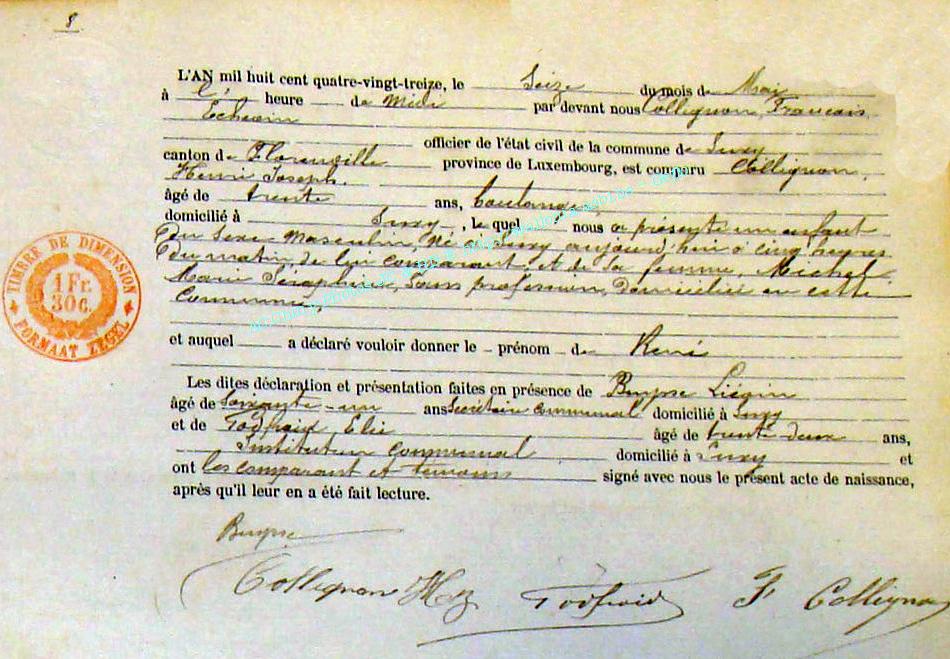 8
L'AN mil huit cent quatre-vingt-treize, le Seize du mois de Mai
à l' heure de Midi par devant nous Collignon, François,
Echevin
officier de l'état civil de la commune de Suxy
canton de Florenville province de Luxembourg, est comparu Collignon,
Henri Joseph.
âgé de trente ans, boulanger,
domicilié à Suxy, le quel nous a présenté un enfant
du sexe masculin, né à Suxy aujourd'hui à cinq heures
du matin de lui comparant et de sa femme, Michel
Marie Séraphine, sans profession, domiciliée en cette
Commune,
et auquel a déclaré vouloir donner le prénom de René
Les dites déclaration et présentation faites en présence de Liégin
âgé de soixante-un ans Secrétaire communal domicilié à Suxy
et de Todfroid Elie âgé de trente deux ans,
Instituteur communal domicilié à Suxy et
ont les comparant et témoins signé avec nous le présent acte de naissance,
après qu'il leur en a été fait lecture.
Collignon Todfroid F Collignon
TIMBRE DE DIMENSION
1 Fr.
30 C.
FORMAAT ZEGEL